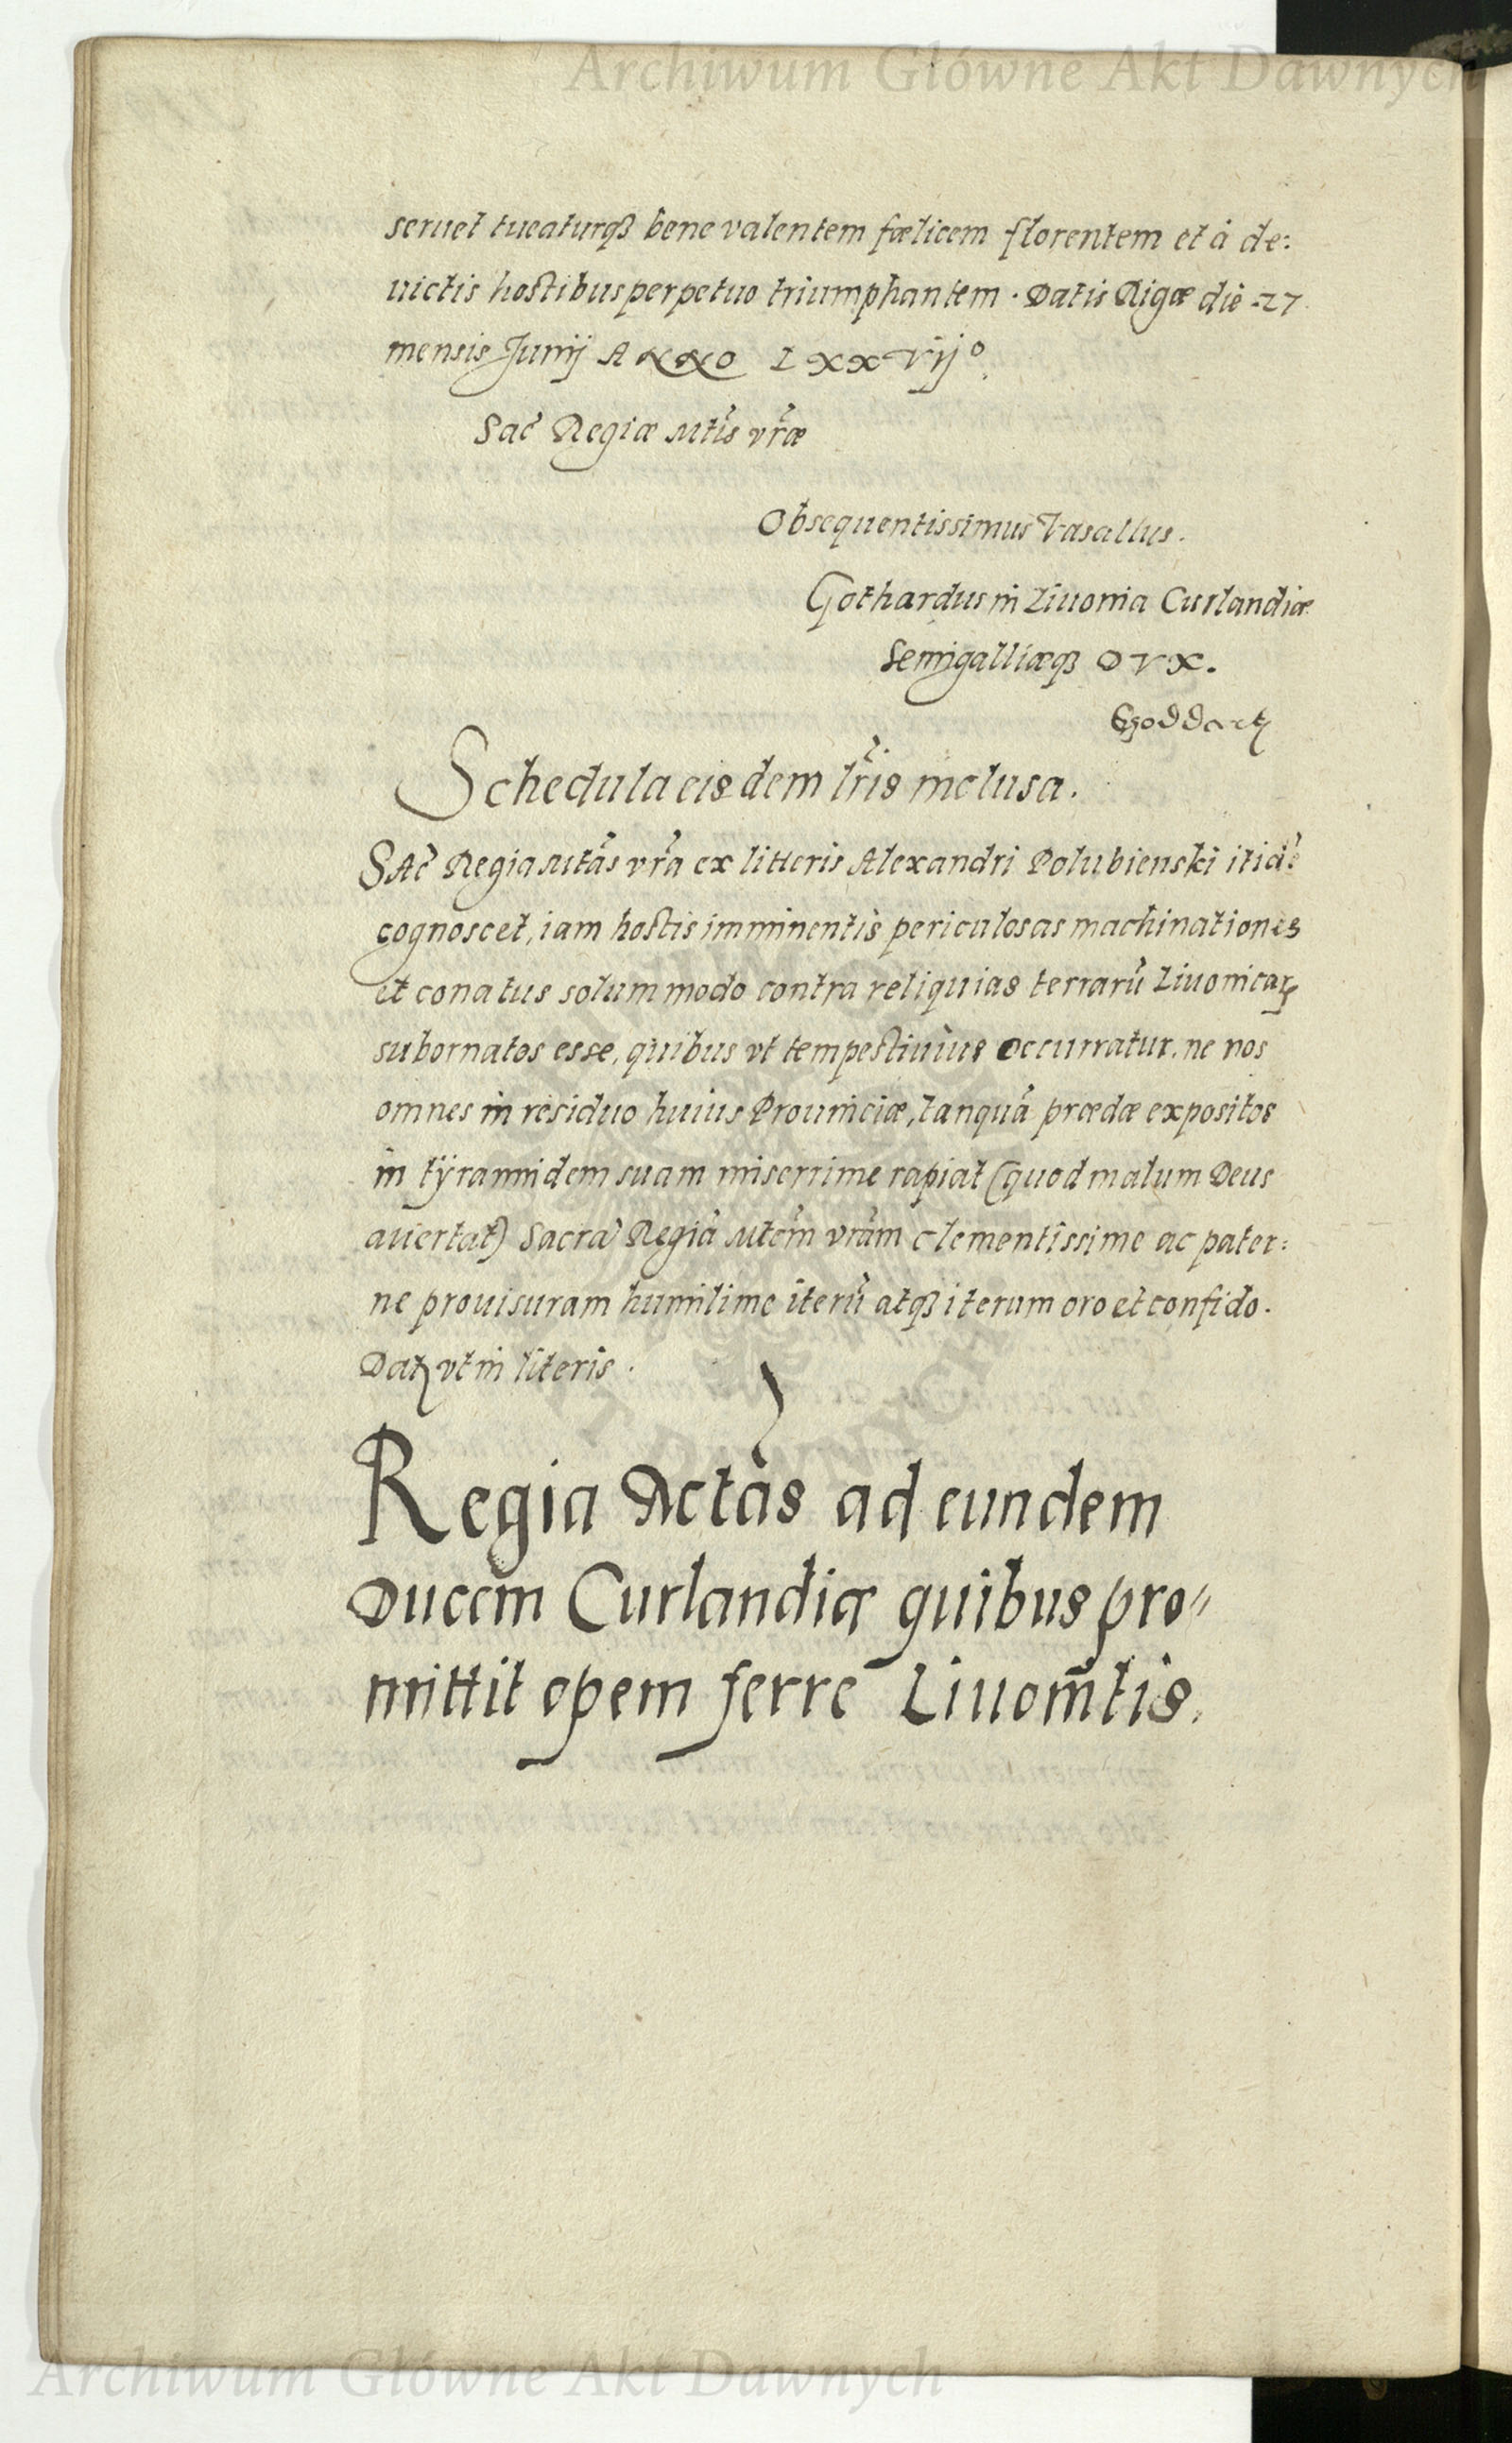 Archiwum Główne Akt Dawnych
seruet tueaturqȝ bene valentem fœlicem florentem et à de:
uictis hostibus perpetuo triumphantem. Datis Rigæ die 27
mensis Junij ANNO LXXVijº
Sac̃ Regiæ Mtĩs vr̃æ
Obsequentissimus Vasallus.
Gothardus in Liuonia Curlandiæ
Semigalliæqȝ DVX.
Schedula eisdem lr̃is inclusa.
SAc̃ Regia Mtãs vr̃a ex litteris Alexandri Polubienski itidẽ
cognoscet, iam hostis imminentis periculosas machinationes
et conatus solummodo contra reliquias terrarũ Liuonicaꝝ
subornatos esse, quibus vt tempestiuius occurratur, ne nos
omnes in residuo huius Prouinciæ, tanquã prædæ expositos
in tÿrannidem suam miserrime rapiat (quod malum Deus
auertat) Sacrã Regiã Mtem̃ vrãm clementissime ac pater:
ne prouisuram humilime iterũ atqȝ iterum oro et confido.
Datꝫ vt in literis.
Regia Mctãs ad eundem
Ducem Curlandiæ quibus pro"
mittit opem ferre Liuoñtis.
Archiwum Główne Akt Dawnych